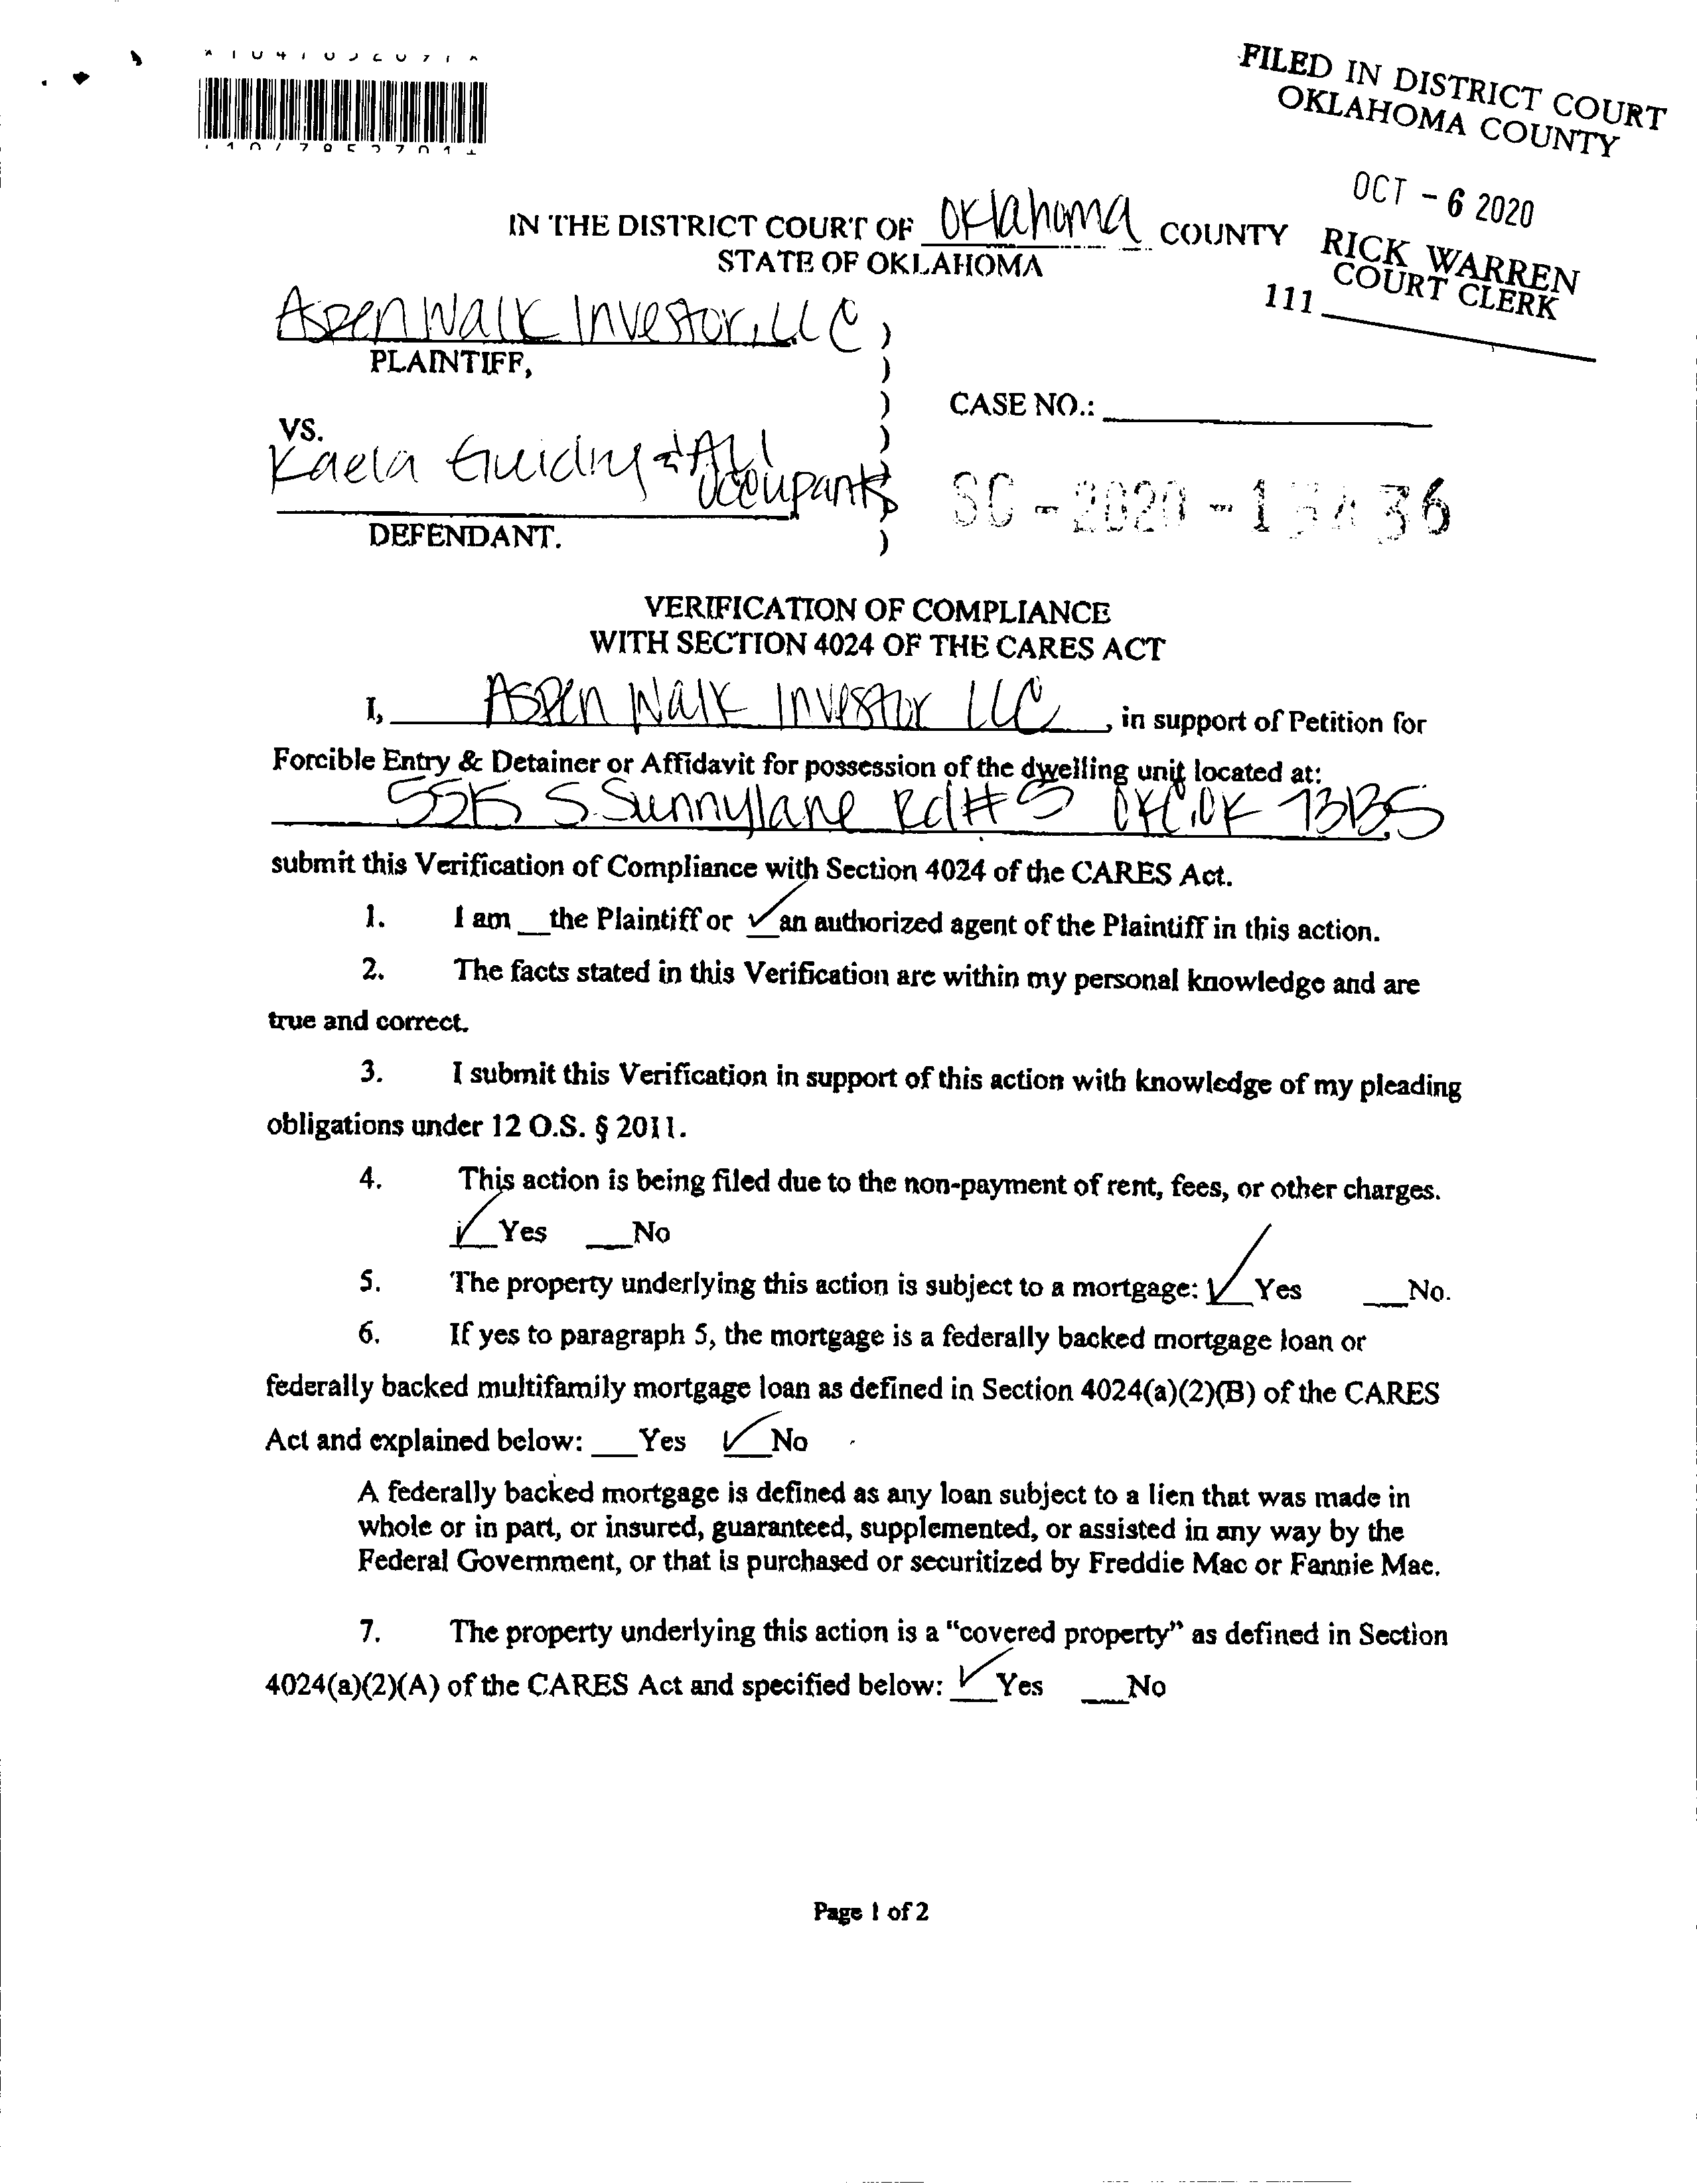 FILED IN DISTRICT COURT
OKLAHOMA COUNTY
OCT - 6 2020
RICK WARREN
COURT CLERK
111
IN THE DISTRICT COURT OF Oklahoma COUNTY
STATE OF OKLAHOMA
Aspen Walk Investor, LLC )
PLAINTIFF, )
) CASE NO.:
VS. )
Kaela Guidry & All
Occupants )
SC-2020-1
36
DEFENDANT. )
VERIFICATION OF COMPLIANCE
WITH SECTION 4024 OF THE CARES ACT
I, Aspen Walk Investor LLC, in support of Petition for
Forcible Entry & Detainer or Affidavit for possession of the dwelling unit located at:
5515 S. Sunnylane Rd #5 OKC, OK 73135
submit this Verification of Compliance with Section 4024 of the CARES Act.
1. I am __the Plaintiff or ✓an authorized agent of the Plaintiff in this action.
2. The facts stated in this Verification are within my personal knowledge and are
true and correct.
3. I submit this Verification in support of this action with knowledge of my pleading
obligations under 12 O.S. § 2011.
4. This action is being filed due to the non-payment of rent, fees, or other charges.
✓Yes ___No
5. The property underlying this action is subject to a mortgage: ✓Yes ___No.
6. If yes to paragraph 5, the mortgage is a federally backed mortgage loan or
federally backed multifamily mortgage loan as defined in Section 4024(a)(2)(B) of the CARES
Act and explained below: ___Yes ✓No
A federally backed mortgage is defined as any loan subject to a lien that was made in
whole or in part, or insured, guaranteed, supplemented, or assisted in any way by the
Federal Government, or that is purchased or securitized by Freddie Mac or Fannie Mae.
7. The property underlying this action is a “covered property” as defined in Section
4024(a)(2)(A) of the CARES Act and specified below: ✓Yes ___No
Page 1 of 2